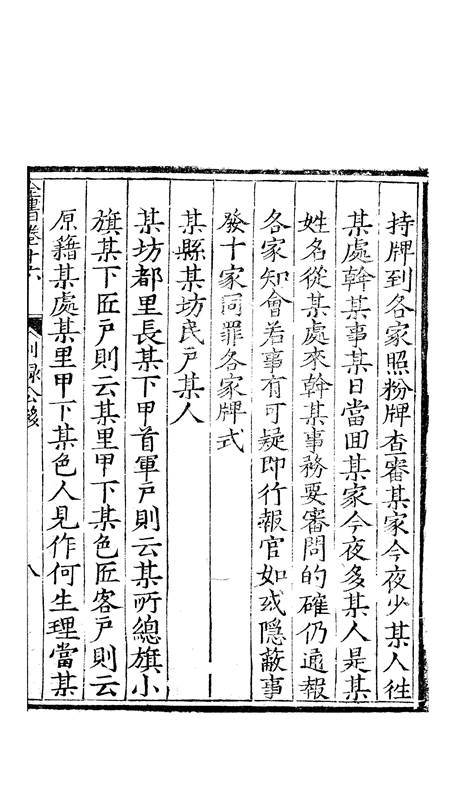 持牌到各家照粉牌查審某家今夜少某人徃
某處幹某事某日當囬某家今夜多某人是某
姓名從某處來幹某事務要審問的確仍通報
各家知會若事有可疑即行報官如或隱蔽事
發十家同罪各家牌式
某縣某坊民户某人
某坊都里長某下甲首軍户則云某所總旗小
旗某下匠户則云某里甲下某色匠客户則云
原籍某處某里甲下某色人見作何生理當某
全書卷十六
別録公移
八